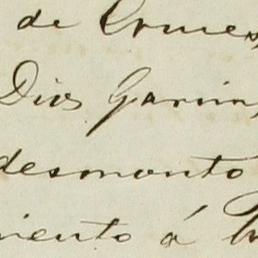 de Cruces
Dios Garcin
desmonto
miento á